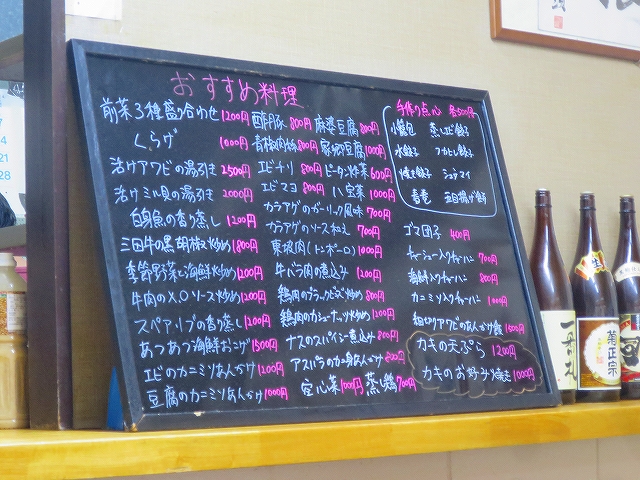 おすすめ料理
前菜3種盛り合わせ 1200円
くらげ 1000円
活けアワビの湯引き 2500円
活けミル貝の湯引き 2000円
白身魚の香り蒸し 1200円
三田牛の黒胡椒炒め 1800円
季節野菜と海鮮炒め 1200円
牛肉のXOソース炒め 1200円
スペアリブの香り蒸し 1200円
あつあつ海鮮おこげ 1500円
エビのカニミソあんかけ 1200円
豆腐のカニミソあんかけ 1000円
酢豚 800円 麻婆豆腐 800円
青椒肉絲 800円 家郷豆腐 1000円
エビチリ 800円 ピータン炒菜 600円
エビマヨ 800円 八宝菜 1000円
カラアゲのガーリック風味 700円
カラアゲのソース和え 700円
東坡肉(トンポーロ) 1000円
牛バラ肉の煮込み 1200円
鶏肉のブラックビーンズ炒め 800円
鶏肉のカシューナッツ炒め 1200円
ナスのスパイシー煮込み 800円
アスパラのカニ身あんかけ 800円
空心菜 1000円 蒸し鶏 700円
手作り点心 各500円
小籠包 蒸しエビ餃子
水餃子 フカヒレ餃子
焼き餃子 シュウマイ
春巻 五目揚げ餅
ゴマ団子 400円
チャーシュー入りチャーハン 700円
海鮮入りチャーハン 800円
カニミソ入りチャーハン 1000円
細切りアワビのあんかけ飯 1500円
カキの天ぷら 1200円
カキのお好み焼き 1000円
生
菊正宗
21
28